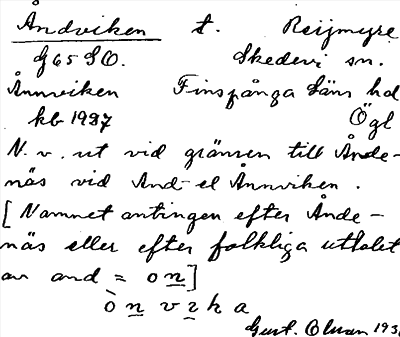 Åndviken t. Reijmyre
G65 SO. Skedevi sn.
Ånnviken Finspånga läns hd
kb 1937 Ögl
N. v. ut vid gränsen till Ånde-
näs vid And- el Ånnviken.
[Namnet antingen efter Ånde-
näs eller efter folkliga uttalet
av and = on]
ò n v z k a
Gust. Olsson